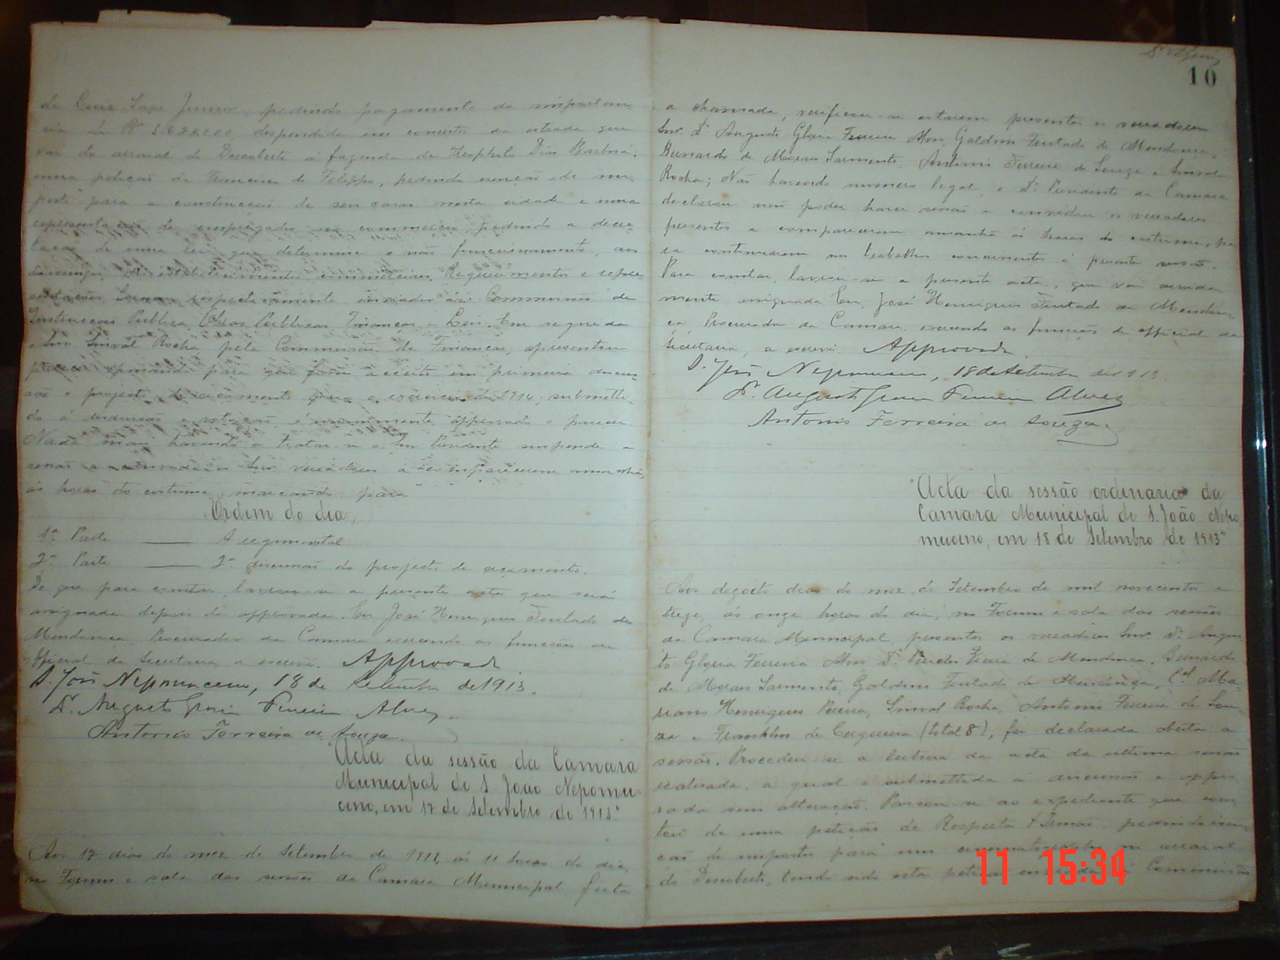 de Cruz Lage Junior, pedindo pagamento da importan
cia de Rs despendida em concerto da estrada que
vae do arraial do Descoberto a fazenda de Theophilo Dias Barbosa,
uma petição de Francisco de Felippo, pedindo isenção de im
posto para a construcção de seu casa nesta cidade e uma
representação de empregados no commercio pedindo a decre
tação de uma lei que determine o não funccionamento, aos
domingos de estabelecimentos commerciaes. Requerimentos e repre
sentação foram respectivamente enviados ás Commissões de
Instrucção Publica, Obras Publicas, Finanças e Lei. Em seguida
o Snr Sinval Rocha pela Commissão de Finanças, apresentou
parecer opinando para que fosse acceito em primeira discus
são o projecto de orçamento para o exercicio de 1914, submetti
do á discussão e votação é unanimemente approvado o parecer.
Nada mais havendo a tratar-se o Snr Presidente suspende a
sessão e convida os Snrs vereadores a comparecerem amanhã,
ás horas do costume, marcando para
Ordem do dia,
1ª Parte —— A regimental
2ª Parte —— 2ª discussão do projecto de orçamento.
Do que para constar lavrou-se a presente acta que será
assignada depois de approvada. Eu José Henriques Furtado de
Mendonça Procurador da Camara exercendo as funcções de
official da Secretaria a escrevi. Approvada
S. João Nepomuceno, 18 de Setembro de 1913.
Dr. Augusto Gloria Ferreira Alves
Antonio Ferreira de Souza
Acta da sessão da Camara
Municipal de S João Nepomu-
ceno, em 17 de Setembro de 1913"
Aos 17 dias do mez de Setembro de 1913, ás 11 horas do dia,
no Forum e sala das sessões da Camara Municipal feita
10
a chamada, verificou-se estarem presentes os vereadores
Snrs. Dr. Augusto Gloria Ferreira Alves, Galdino Furtado de Mendonça,
Bernardo de Moraes Sarmento, Antonio Ferreira de Souza e Sinval
Rocha; Não havendo numero legal, o Dr. Presidente da Camara
declarou não poder haver sessão e convidou os vereadores
presentes a comparecerem amanhã ás horas do costume, pa
ra continuarem os trabalhos concernentes á presente sessão.
Para constar, lavrou-se a presente acta, que vai devida
mente assignada Eu, José Henriques Furtado de Mendon
ça, Procurador da Camara, exercendo as funcções de official da
Secretaria, a escrevi Approvada
S. João Nepomuceno, 18 de Setembro de 1913
Dr. Augusto Gloria Ferreira Alves
Antonio Ferreira de Souza
"Acta da sessão ordinaria da
Camara Municipal de S. João Nepo
muceno, em 18 de Setembro de 1913"
Aos dezoito dias do mez de Setembro de mil novecentos e
treze, ás onze horas do dia, no Forum e sala das sessões
da Camara Municipal, presentes os vereadores Snrs. Dr. Augus
to Gloria Ferreira Alves, Dr. Pericles Vieira de Mendonça, Bernardo
de Moraes Sarmento, Galdino Furtado de Mendonça, Cel Ma-
riano Henriques Pereira, Sinval Rocha, Antonio Ferreira de Sou-
za e Franklin de Cerqueira (total 8), foi declarada aberta a
sessão. Procedeu-se a leitura da acta da ultima sessão
realisada, a qual é submettida a discussão e appro
vada sem alteração. Passou-se ao expediente que cons
tou de uma petição de Rosperto & Irmão, pedindo isen
ção de imposto para um cinematographo no arraial
do Descoberto, tendo sido esta petição enviada á Commissão
11 15:34